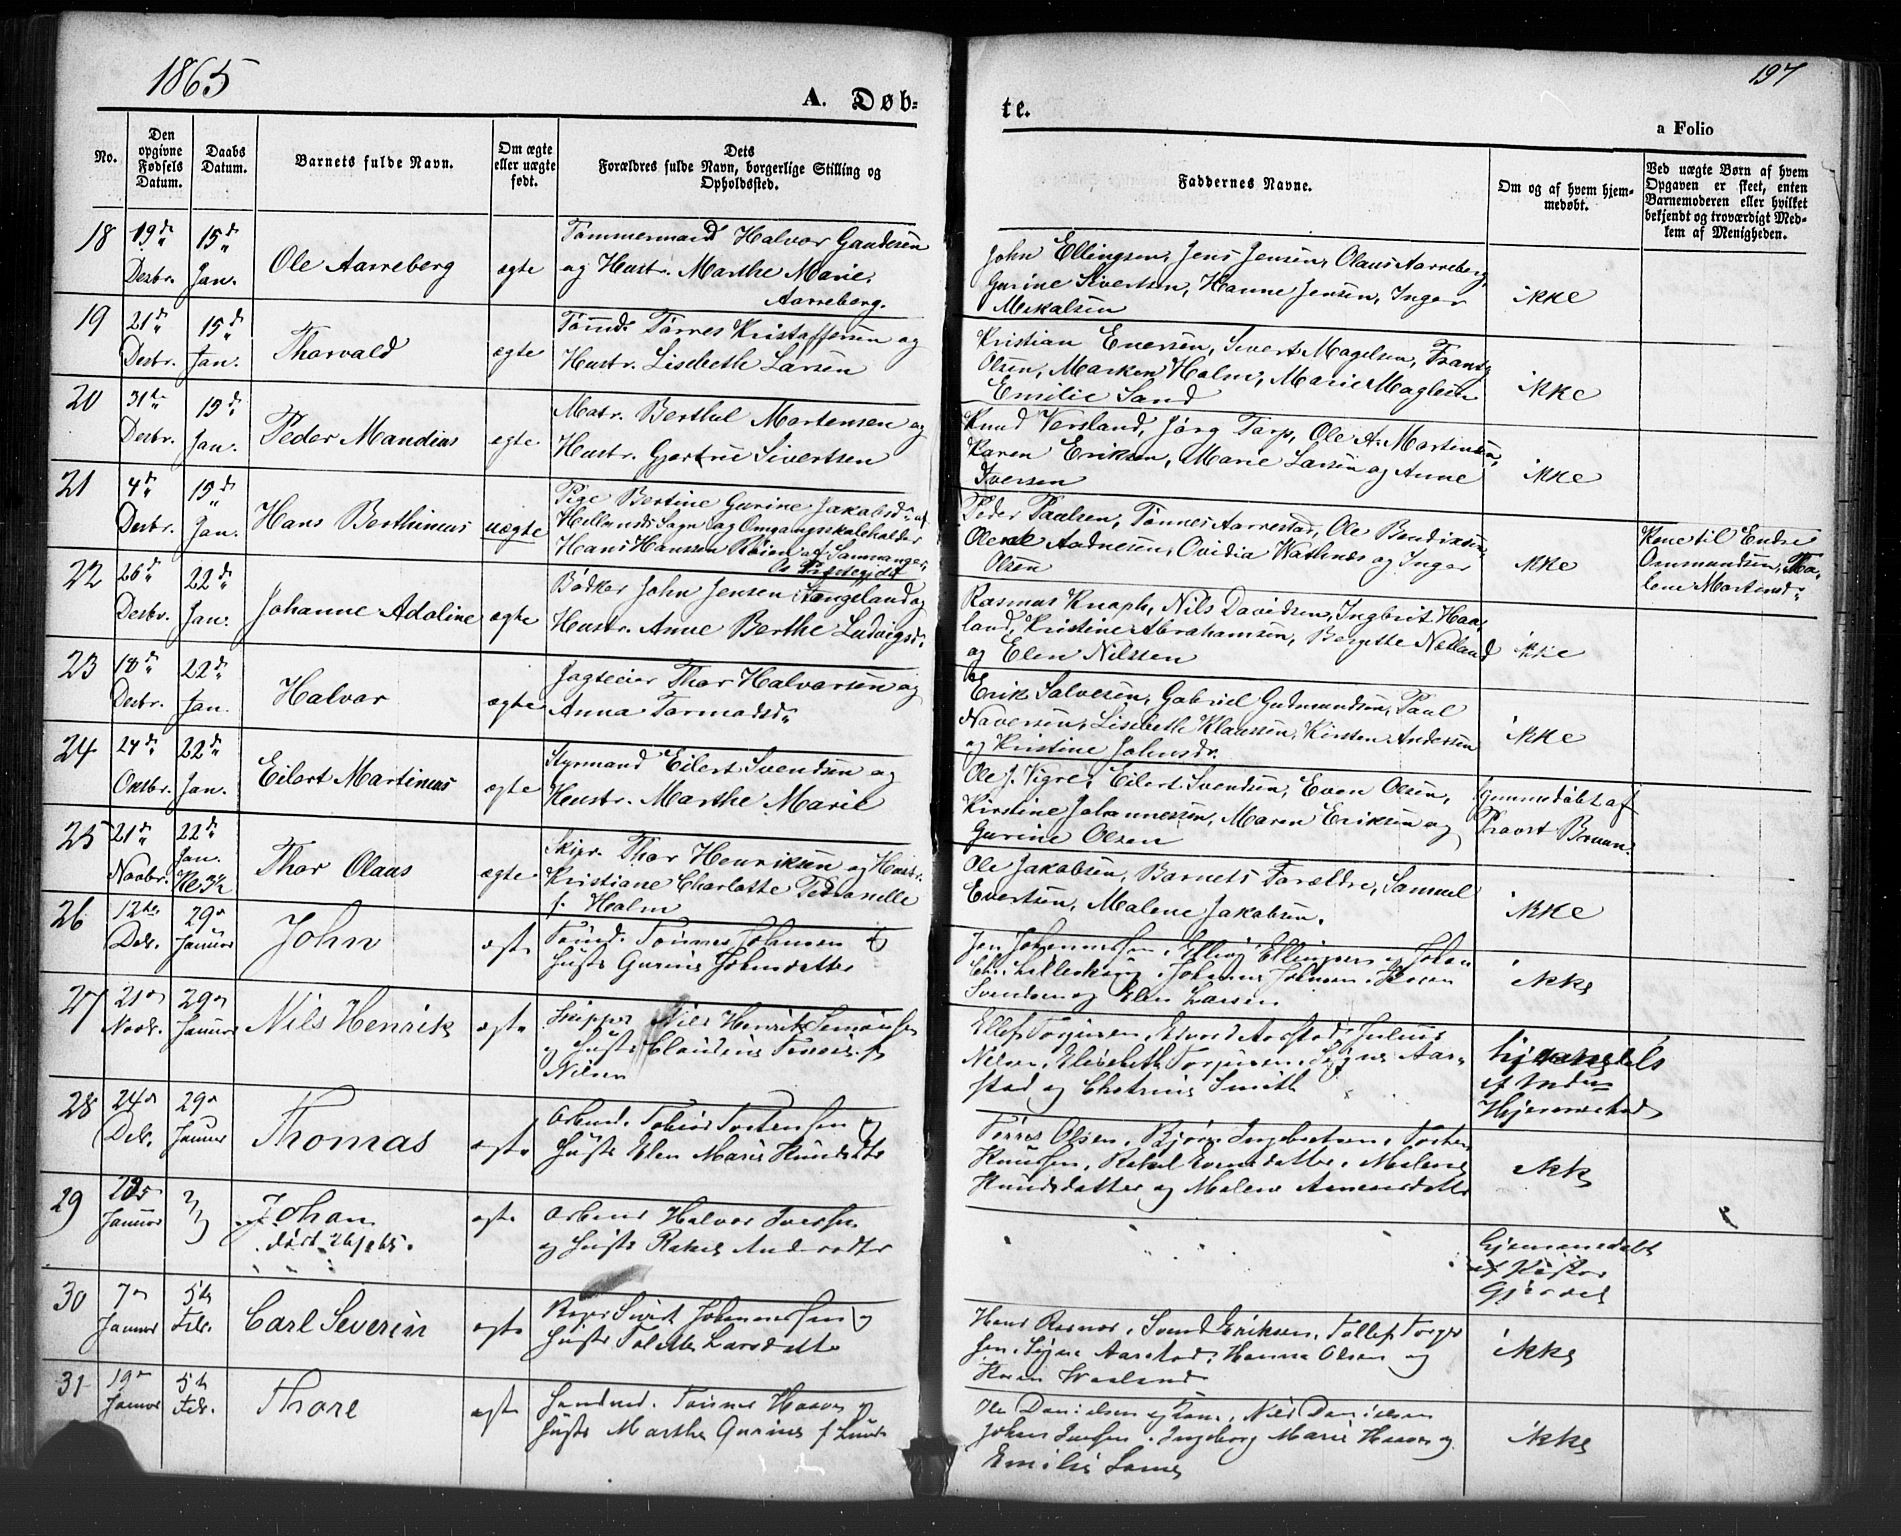 1865
197
A. Døb-
te.
a Folio
No.
Den opgivne Fødsels Datum.
Daabs Datum.
Barnets fulde Navn.
Om ægte eller uægte født.
Dets Forældres fulde Navn, borgerlige Stilling og Opholdssted.
Faddernes Navne.
Om og af hvem hjemmedøbt.
Ved uægte Børn af hvem Opgaven er skeet, enten Barnemoderen eller hvilket bekjendt og troværdigt Medlem af Menigheden.
18
19de Desbr.
15de Jan.
Ole Aarreberg
ægte
Tømmermand Halvor Gaudesen
og Hustr. Marthe Marie
Aarreberg.
John Ellingsen, Jens Jensen, Olaus Aarreberg,
Gurine Sivertsen, Hanne Jensen, Inger
Mekalsen
ikke
19
21de Desbr.
15de Jan.
Thorvald
ægte
Tømd. Tørres Kristoffersen og
Hustr. Lisebeth Larsen
Kristian Evensen, Sivert Magelsen, Frants
Olsen, Marken Holm, Marie Maglesen
Emilie Sand
ikke
20
31te Desbr.
15de Jan.
Peder Mandius
ægte
Matr. Berthul Mortensen og
Hustr. Gjertrue Sivertsen
Knud Versland, Jörg Tarp, Ole A. Mortensen,
Karen Eriksen, Marie Larsen og Anne
Iversen
ikke
21
4de Desbr.
15de Jan.
Hans Berthinius
uægte
Pige Bertine Gurine Jakobsd. af
Hetlands Sogn og Omgangsskoleholder
Hans Hanssen Röien af Samnanger,
Os Præstegjeld
Peder Paulsen, Tønnes Aarrestad, Ole Bendixsen,
Aadnesen, Ovidia Wathnes og Inger
Olsen
ikke
Kone til Endre
Ommundsen, Ma-
lene Mortensd.
22
26de Desbr.
22de Jan.
Johanne Adoline
ægte
Bødker John Jensen Stangeland og
Hustr. Anne Berthe Ludvigsd.
Rasmus Knaph, Nils Davidsen, Ingbrit Haa-
land, Kristine Abrahamsen, Bergitte Nelland
og Elen Nilssen
ikke
23
18de Desbr.
22de Jan.
Halvor
ægte
Jagteier Thor Halvorsen og
Anna Tormodsd.
Erik Salvesen, Gabriel Gudmundsen, Paul
Naversen, Lisebeth Klaussen, Kirsten Andersen
og Kristine Johnsdr.
ikke
24
24de Oktbr.
22de Jan.
Eilert Martinius
ægte
Styrmand Eilert Svendsen og
Hustr. Marthe Marie
Ole J. Vigre, Eilert Svendsen, Even Olsen,
Kirstine Johannessen, Maren Eriksen og
Gurine Olsen
hjemmedøbt af
Provst Bruun.
25
21de Novbr.
22de Jan. Kl 3½
Thor Olaus
ægte
Skipr. Thor Henriksen og Hustr.
Kristiane Charlotte Petronelle
f. Holm
Ole Jakobsen, Barnets Forældre, Samuel
Evertsen, Malene Jakobsen.
ikke
26
12te Debr.
29n Januar
John
egte
Tømd. Tønnes Johnsen &
Hustr Gurine Johnsdatter
Jon Johannessen, Elling Ellingsen, Johan
Johanne Johnsen, Karen
Svendsen og Elen Larsen
ikke
27
21n Novbr.
29n Januar
Nils Henrik
egte
Skipper Nils Henrik Simonsen
og Hustr Claudine
Nilsen
Ellef Torjusen, Edvard Aarstad, Julius
Nilsen, Elisabeth Torjusen, Signe Aar-
stad og Chatrine Smith
hjemmedøbt
af
28
24n Debr.
29n Januar
Thomas
egte
Arbmd. Tobias Tostensen og
Hustr Elen Marie Knudsdtr
Tørres Olsen, Bjørn Ingebretsen, Tosten
Knudsen, Rakel Evensdatter, Malene
Knudsdatter og Malene
ikke
29
Januar
Johan
død 26/1 65.
egte
Arbmd Halvor Iversen
og Hustr Rakel Andersdtr
hjemmedøbt
af
30
7n Januar
5te Febr.
Carl Severin
egte
Sivert Johannessen og
Hustr Larsdatter
Hans Svend Eriksen, Tollef Torger
sen, Signe Aarstad, Hanna Olsen og
Karen
ikke
31
19n Januar
5te Febr.
Thore
egte
Tønnes Haaver og
Hustr Marthe Gurine f. Lunde
Ole Danielsen og Kone, Nils Danielsen
Johan Iversen, Ingeborg Marie Haaver og
Emilie
ikke